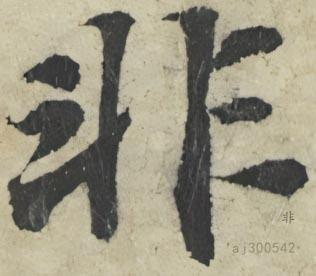 非
非
'aj300542·